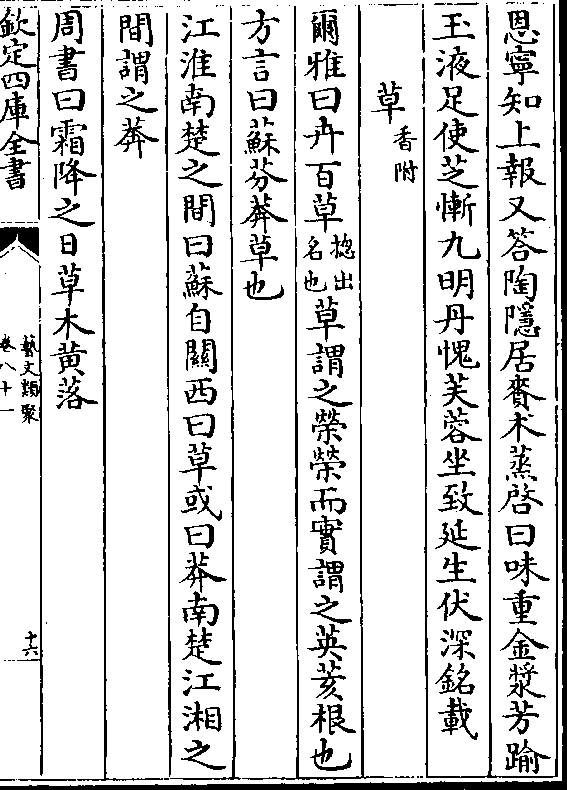 恩寧知上報又答陶隱居賚术蒸啓曰味重金漿芳踰
玉液足使芝慚九明丹愧芙蓉坐致延生伏深銘載
草香附
爾雅曰卉百草揔出名也草謂之榮榮而實謂之英荄根也
方言曰蘇芬莽草也
江淮南楚之間曰蘇自關西曰草或曰莽南楚江湘之
間謂之莽
周書曰霜降之日草木黄落
欽定四庫全書
藝文類聚
卷八十一
十六